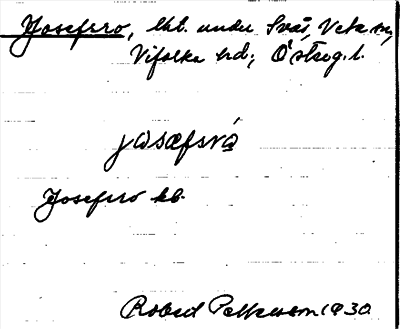 Josefsro, lhb. under Svås, Veta sn,
Vifolka hd; Östrog. l.
josæfsrơ
Josefsro kb.
Robert Pettersson 1930.